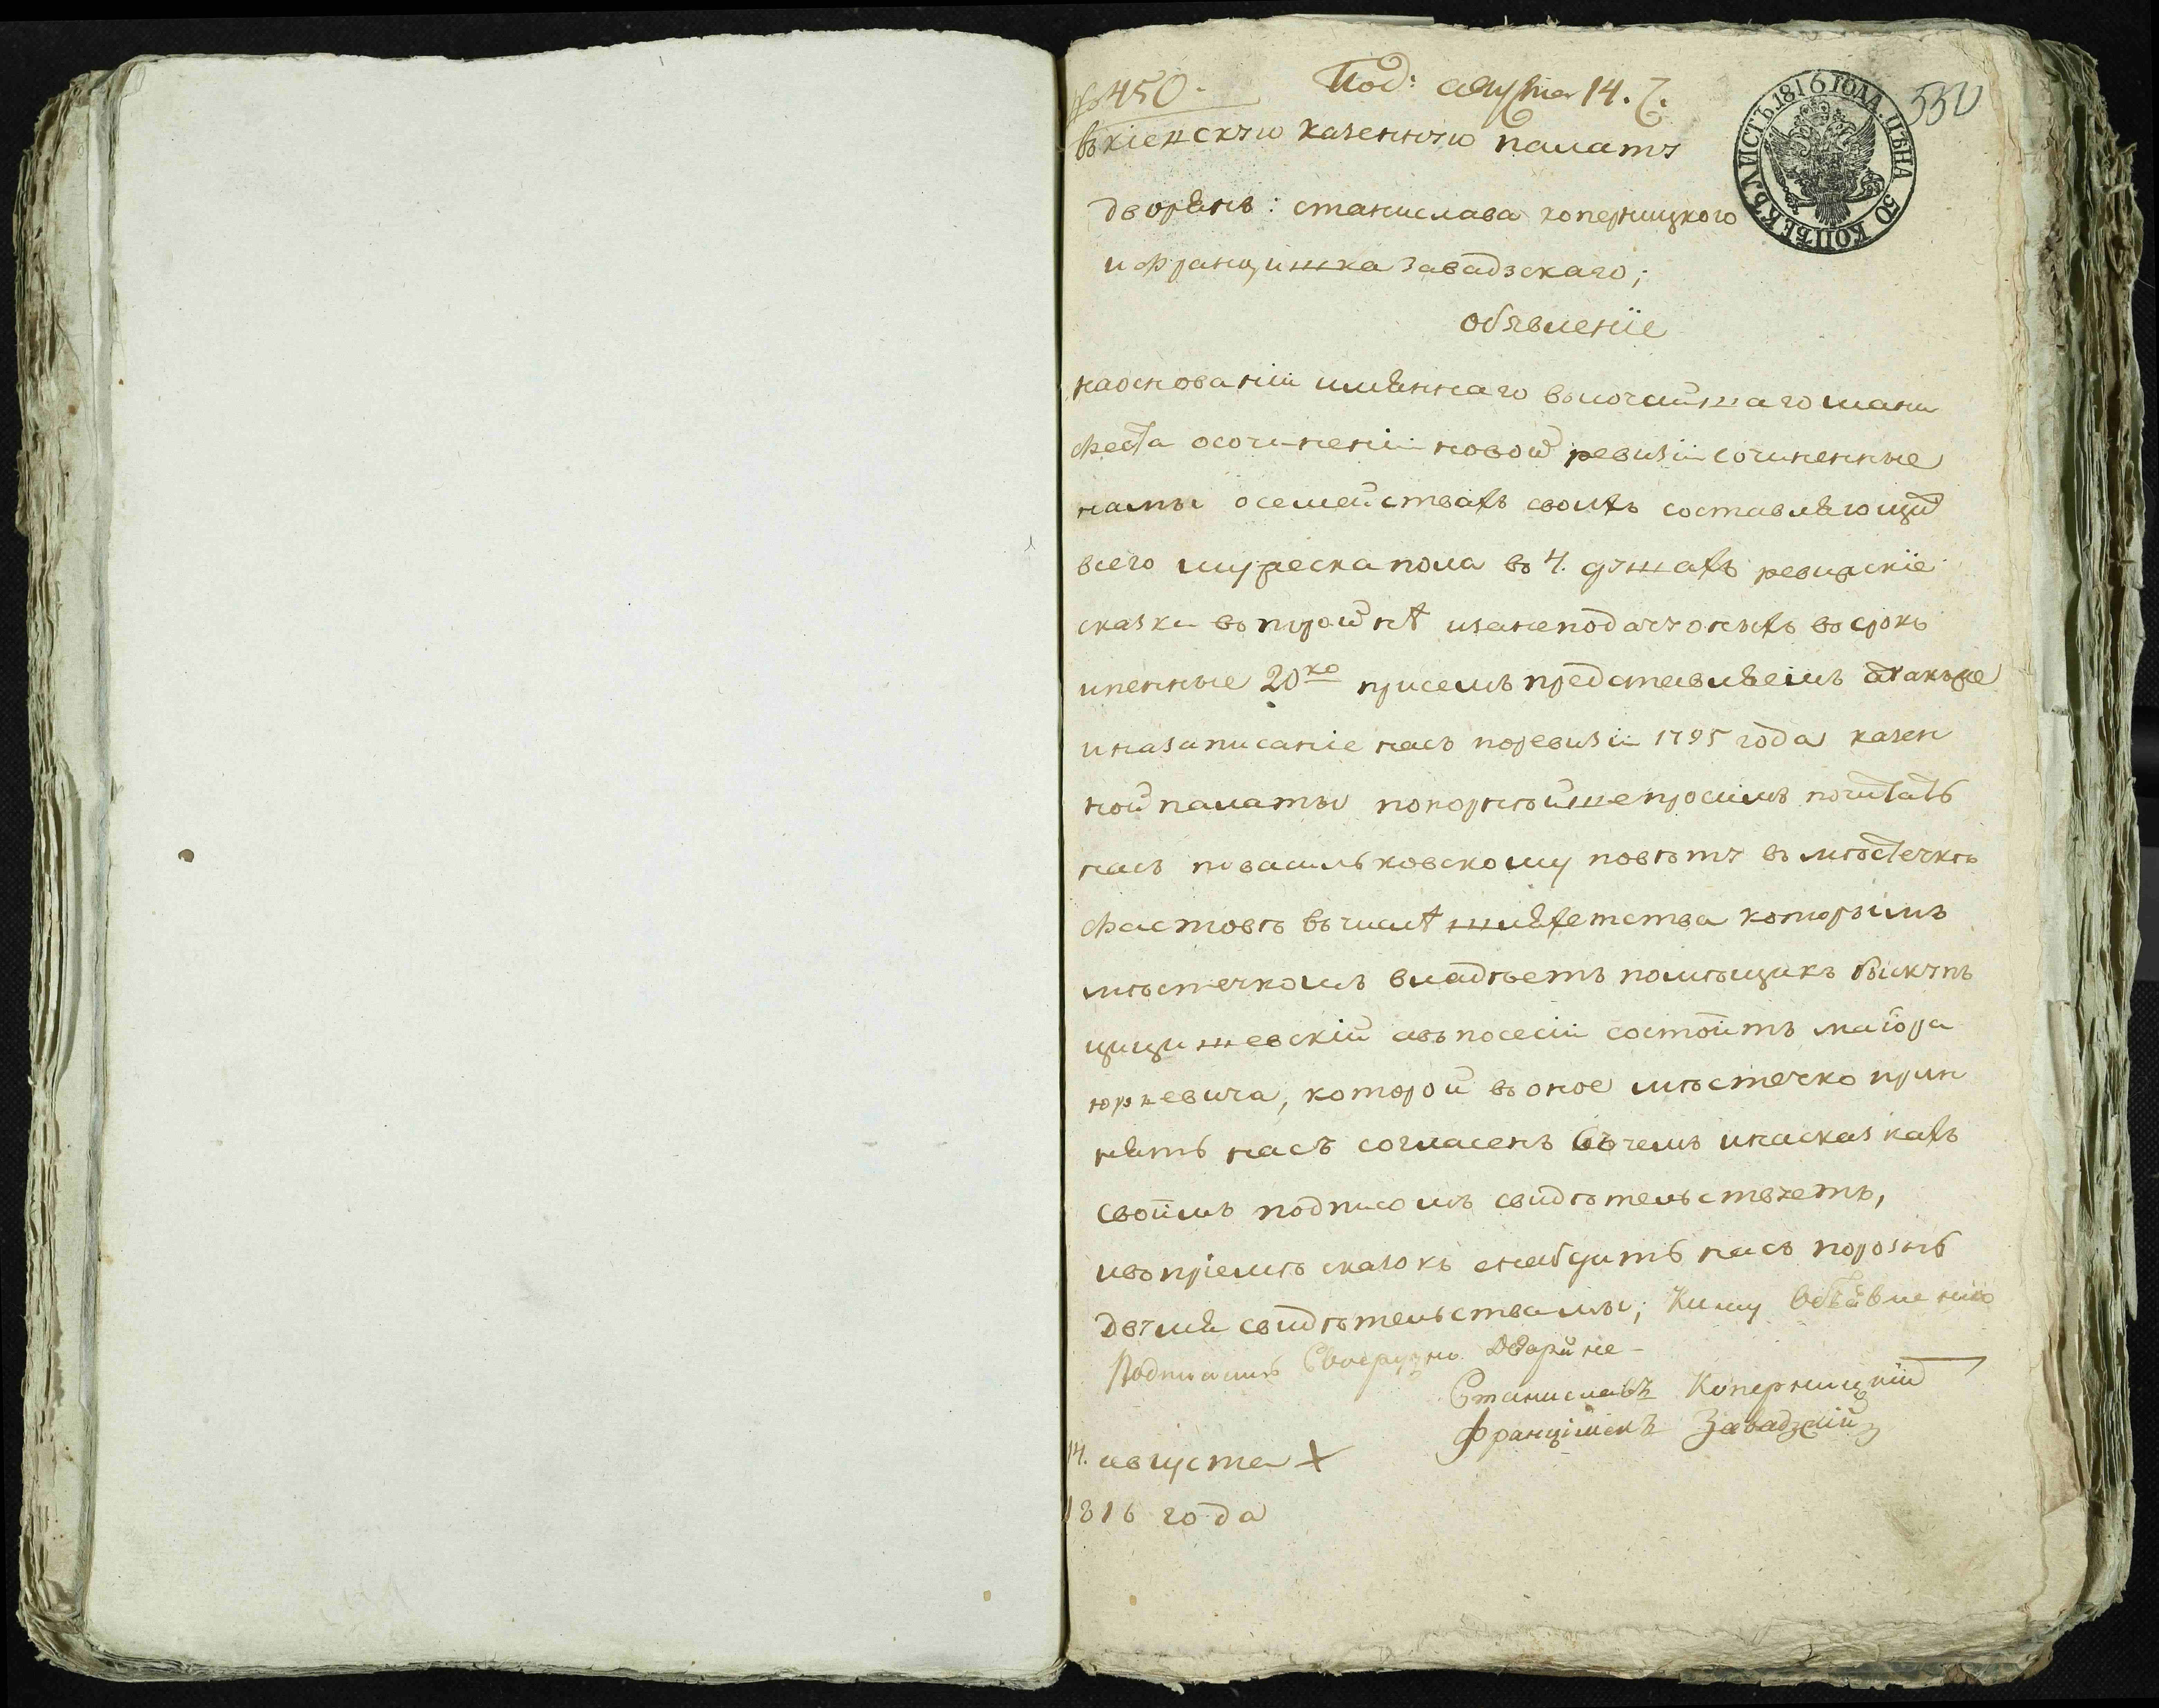 № 450. Под: августа 14. д.
550
ЛИСТЪ 1816 ГОДА. ЦѢНА 50 КОПѢЕКЪ
въ кіевскую казенную палату
дворянъ: станислава коперницкого
и францишка завадзскаго;
объявленіе
на основаніи имяннаго высочайшаго мани
феста о сочиненіи новой ревизіи сочиненные
нами о семействахъ своихъ составляющій
всего мужеска пола въ 4. душахъ ревизскіе
сказки въ тройнѣ и за неподачу оныхъ въ срокъ
пенные 20ко при семъ представляемъ а такъже
и на записаніе насъ по ревизіи 1795 года казен
ной палаты покорнѣйше просимъ почитать
насъ по васильковскому повѣту въ мѣстечкѣ
фастовѣ въ числѣ шляхетства которымъ
мѣстечкомъ владѣетъ помѣщикъ бискупъ
цицишевскій а въ посесіи состоитъ маіора
юркевича, которой въ оное мѣстечко прин
нять насъ согласенъ въ чемъ и на сказкахъ
своимъ подписомъ свидѣтельствуетъ,
и въ пріемѣ сказокъ снабдить насъ порознѣ
двумя свидѣтельствами; К сему объявлению
Подписались Своеручно Дворяне
Станиславъ Коперницкій
Францішекъ Завадзкій
14. августа
1816 года